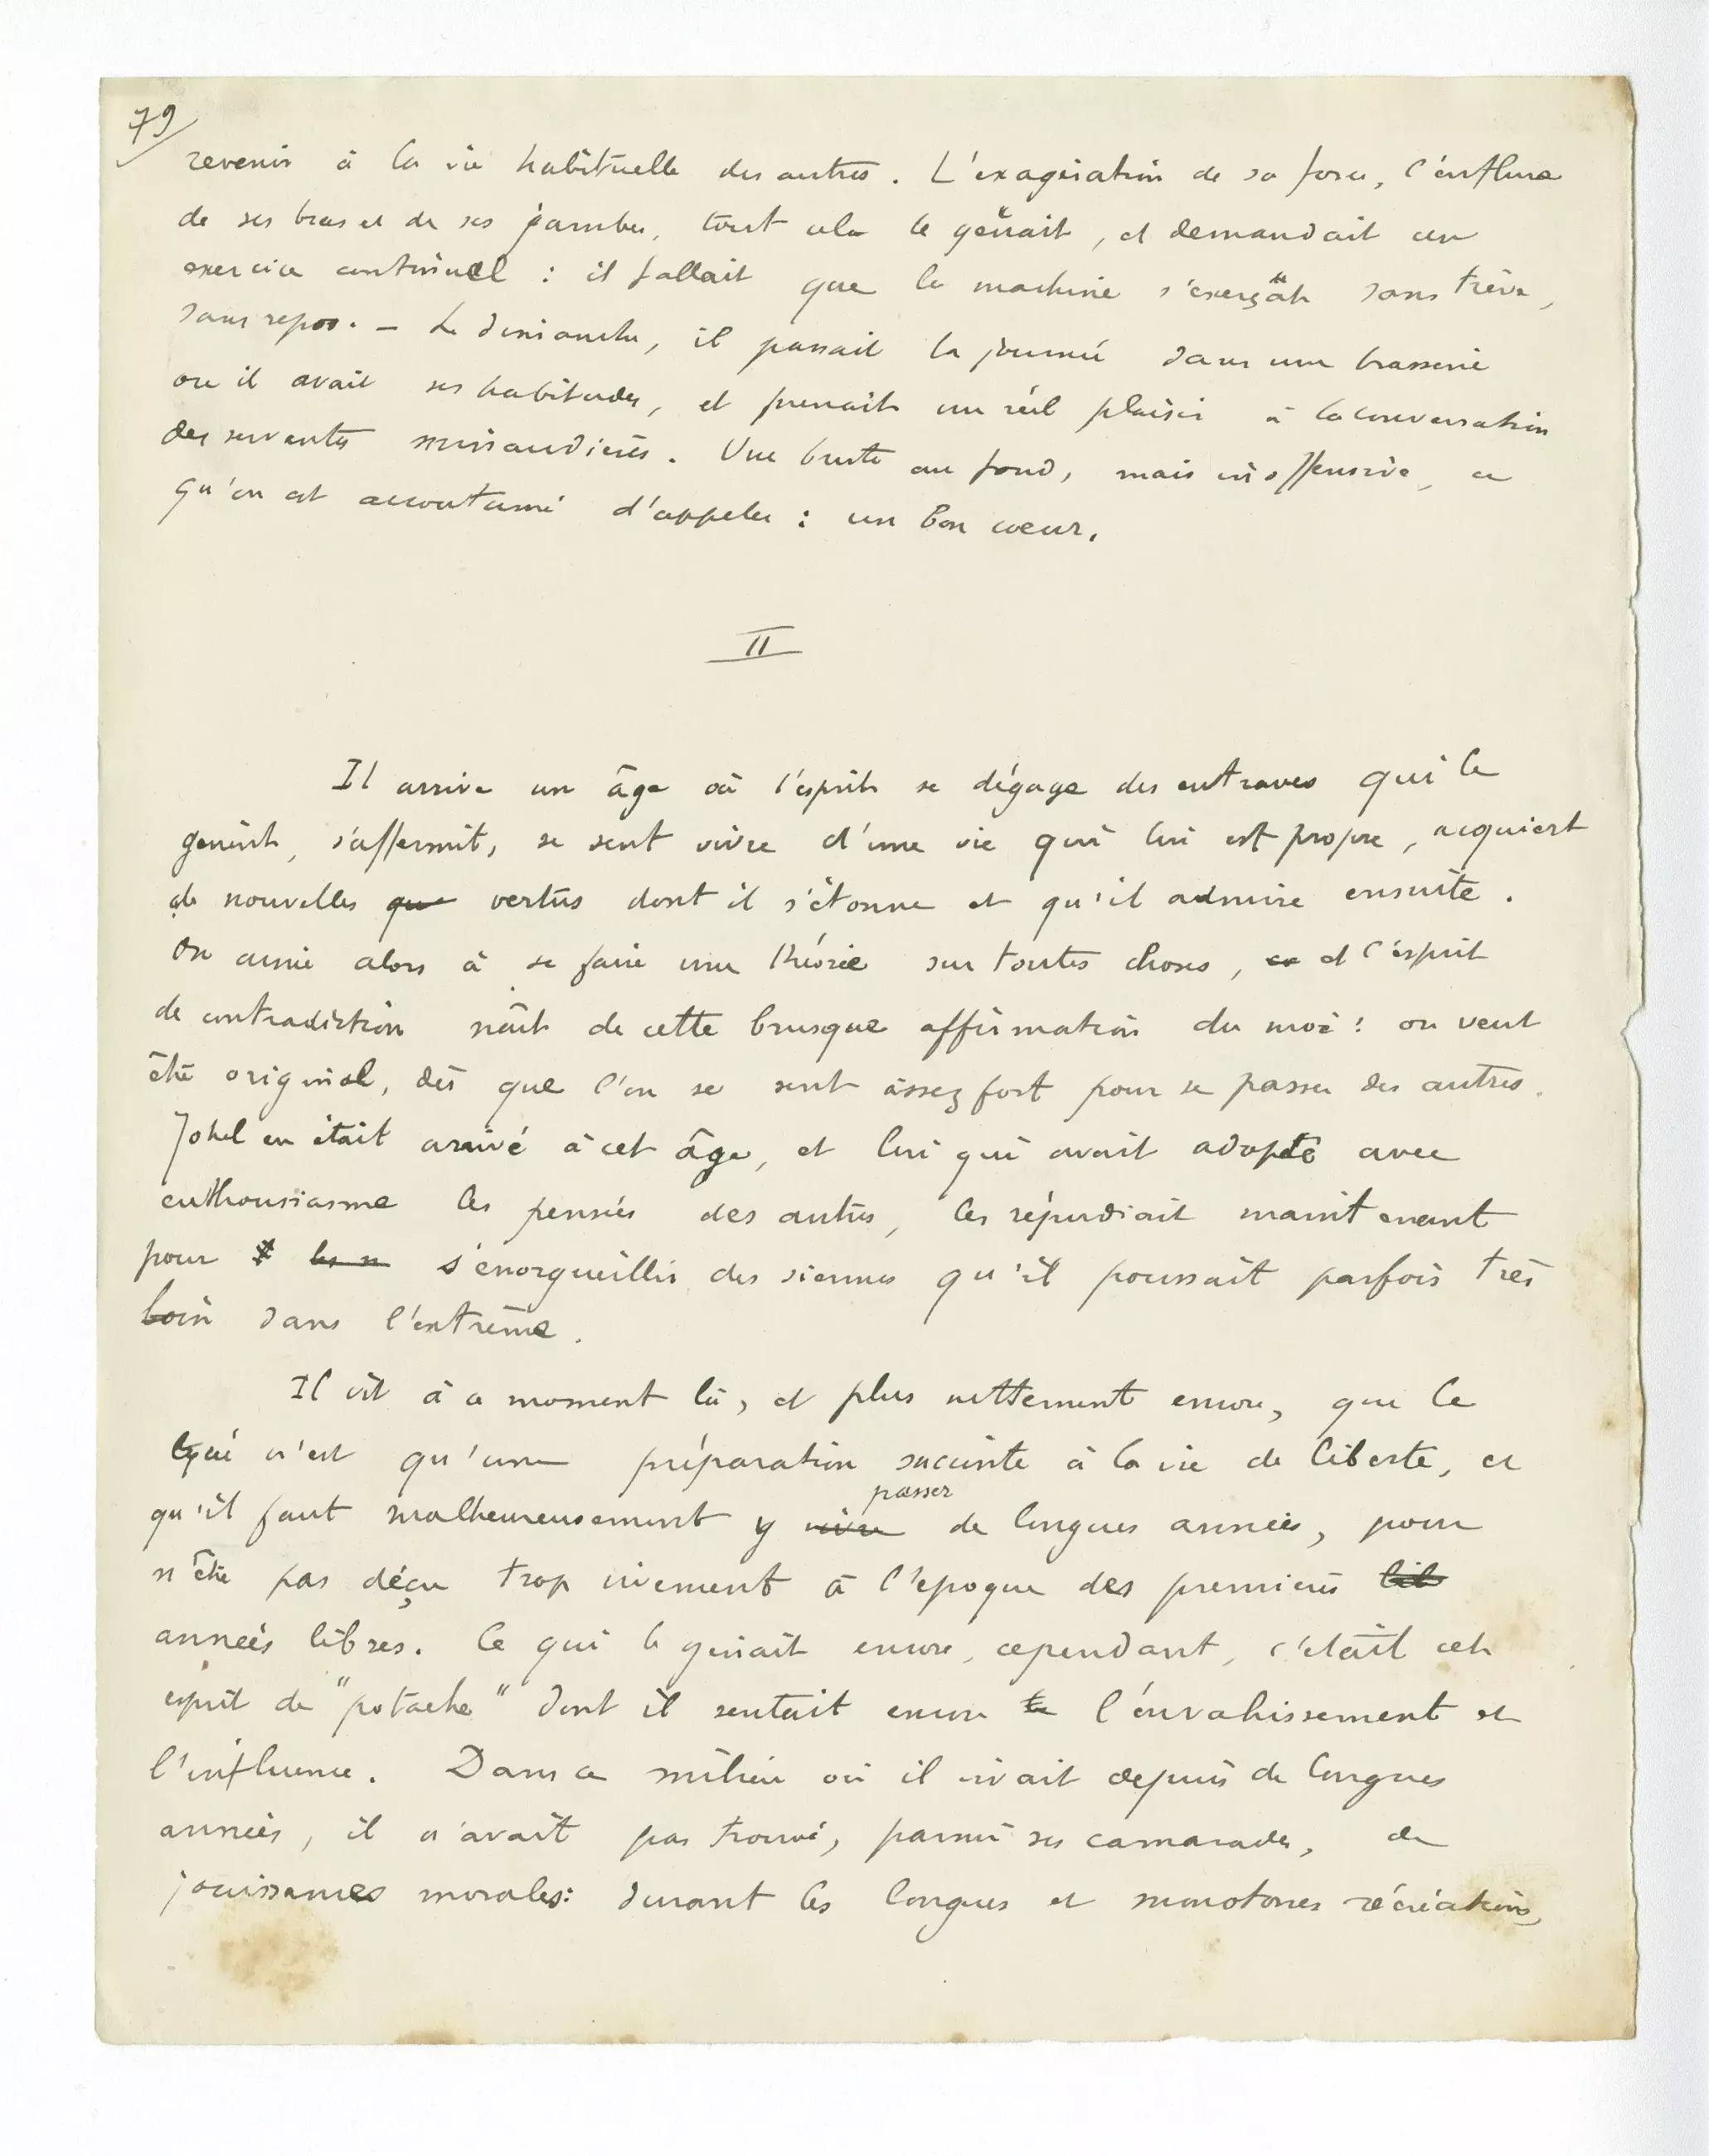 79
revenir à la vie habituelle des autres. L'exagération de sa force, l'enflure
de ses bras et de ses jambes, tout cela le gênait, et demandait un
exercice continuel : il fallait que la machine s'exerçât sans trêve,
sans repos. — Le dimanche, il passait la journée dans une brasserie
où il avait ses habitudes, et prenait un réel plaisir à la conversation
des servantes minaudières. Une brute au fond, mais inoffensive, ce
qu'on est accoutumé d'appeler : un bon cœur.
II
Il arrive un âge où l'esprit se dégage des entraves qui le
gênent, s'affermit, se sent vivre d'une vie qui lui est propre, acquiert
de nouvelles que vertus dont il s'étonne et qu'il admire ensuite.
On aime alors à se faire une théorie sur toutes choses, et l'esprit
de contradiction naît de cette brusque affirmation du moi : on veut
être original, dès que l'on se sent assez fort pour se passer des autres.
Johel en était arrivé à cet âge, et lui qui avait adopté avec
enthousiasme les pensées des autres, les répudiait maintenant
pour s'enorgueillir des siennes qu'il poussait parfois très
loin dans l'extrême.
Il vit à ce moment là, et plus nettement encore, que le
lycée n'est qu'une préparation succinte à la vie de liberté, et
passer
qu'il faut malheureusement y vivre de longues années, pour
n'être pas déçu trop vivement à l'époque des premières lib
années libres. Ce qui le gênait encore, cependant, c'était cet
esprit de "potache" dont il sentait encore l'envahissement et
l'influence. Dans ce milieu où il vivait depuis de longues
années, il n'avait pas trouvé, parmi ses camarades, de
jouissances morales : durant les longues et monotones récréations,